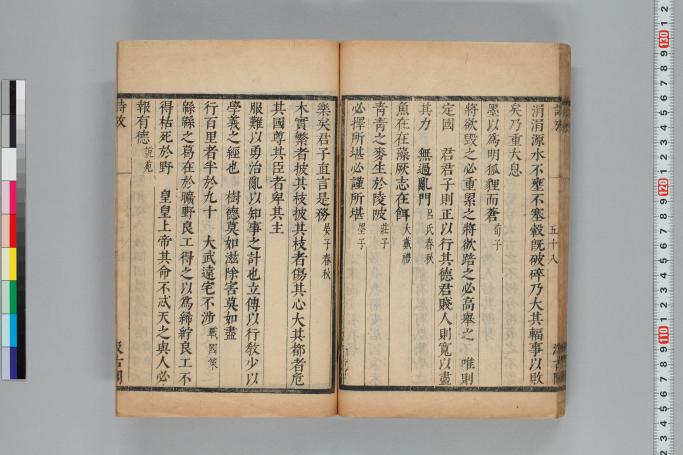 五十八
涓涓源水不壅不塞轂既破碎乃大其輻事以敗
矣乃重大息
墨以為明狐狸而蒼荀子
將欲毀之必重累之將欲踣之必高舉之 唯則
定國 君君子則正以行其德君賤人則寬以盡
其力 無過亂門呂氏春秋
魚在在藻厥志在餌大戴禮
青青之麥生於陵陂莊子
必擇所堪必謹所堪墨子
樂矣君子直言是務晏子春秋
木實繁者披其枝披其枝者傷其心大其都者危
其國尊其臣者卑其主
服難以勇治亂以知事之計也立傅以行敎少以
學義之經也 樹德莫如滋除害莫如盡
行百里者半於九十 大武遠宅不涉戰國策
緜緜之葛在於曠野良工得之以為絺紵良工不
得枯死於野 皇皇上帝其命不忒天之與人必
報有德說苑
詩攷
汲古閣